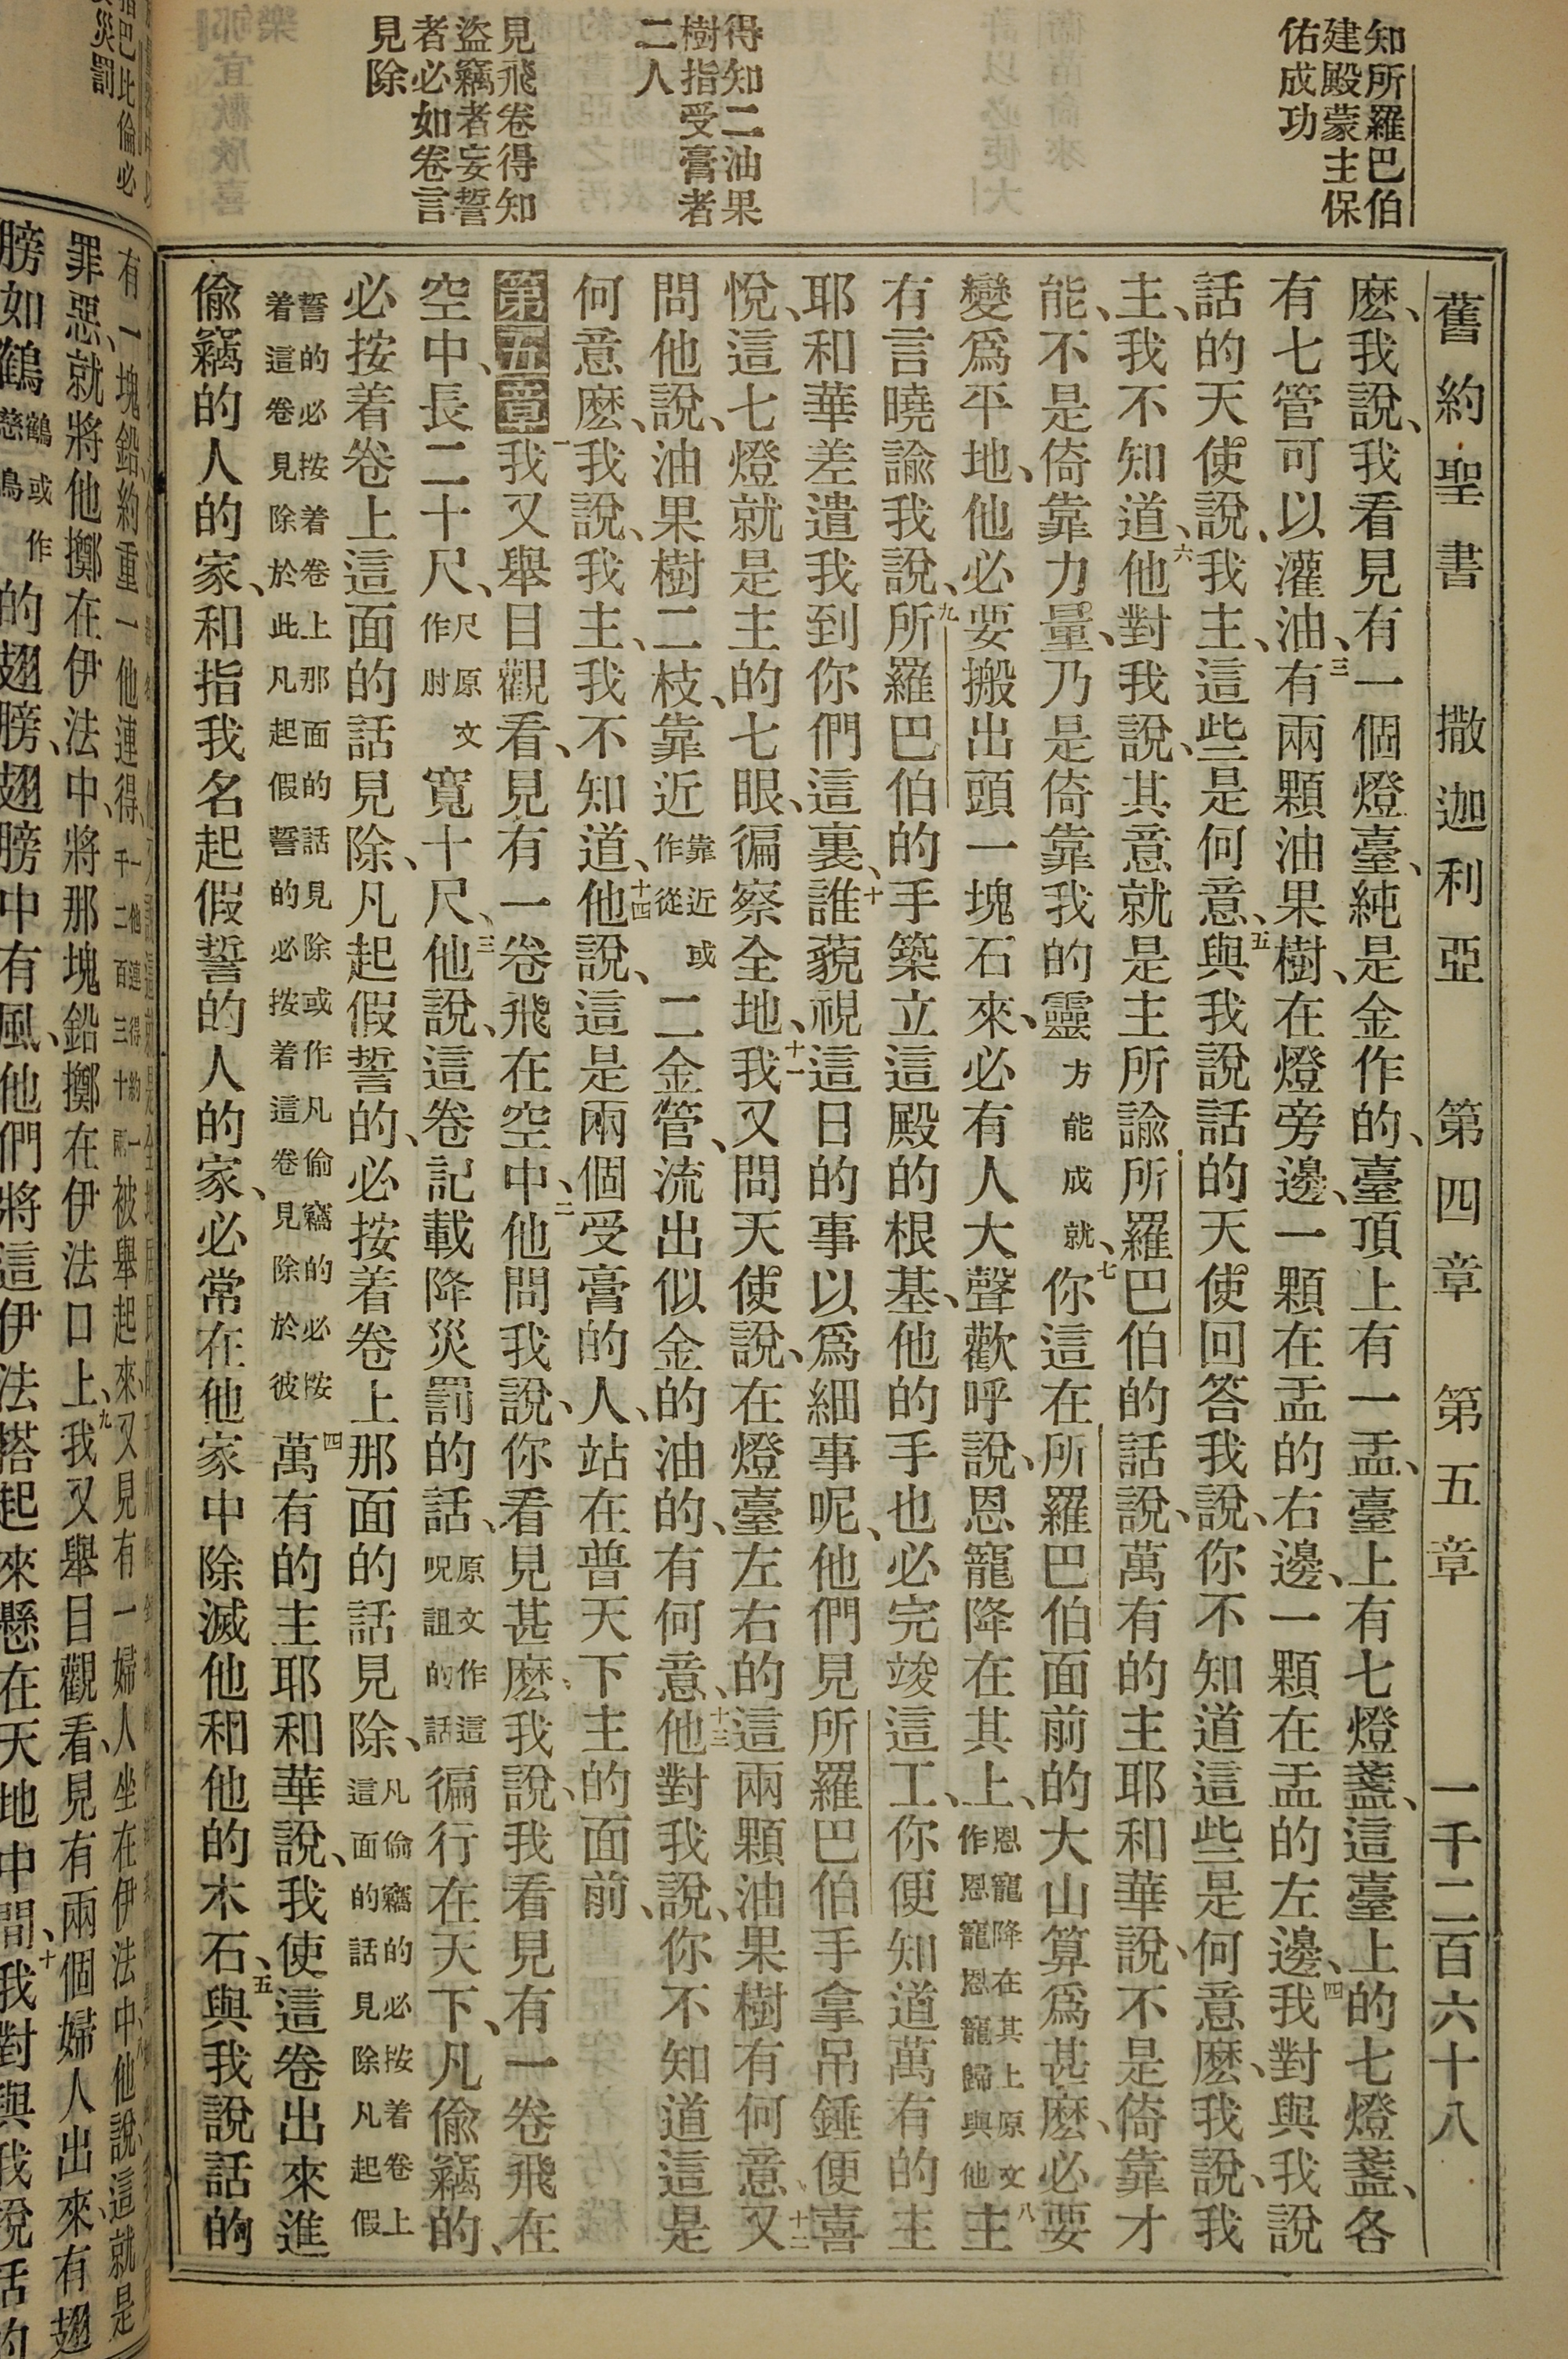 知所羅巴伯
建殿蒙主保
佑成功
得知二油果
樹指受膏者
二人
見飛卷得知
盜竊者妄誓
者必如卷言
見除
舊約聖書 撒迦利亞 第四章 第五章 一千二百六十八
麽、我說、我看見有一個燈臺、純是金作的、臺頂上有一盂、臺上有七燈盞、這臺上的七燈盞、各
有七管可以灌油、三有兩顆油果樹、在燈旁邊、一顆在盂的右邊、一顆在盂的左邊、四我對與我說
話的天使說、我主、這些是何意、五與我說話的天使回答我說、你不知道這些是何意麽、我說、我
主、我不知道、六他對我說、其意就是主所諭所羅巴伯的話說、萬有的主耶和華說、不是倚靠才
能、不是倚靠力量、乃是倚靠我的靈方能成就、七你這在所羅巴伯面前的大山算爲甚麽、必要
變爲平地、他必要搬出頭一塊石來、必有人大聲歡呼說、恩寵降在其上、恩寵降在其上原文作恩寵恩寵歸與他八主
有言曉諭我說、九所羅巴伯的手築立這殿的根基、他的手也必完竣這工、你便知道萬有的主
耶和華差遣我到你們這裏、十誰藐視這日的事以爲細事呢、他們見所羅巴伯手拿吊錘便喜
悅、這七燈就是主的七眼、徧察全地、十一我又問天使說、在燈臺左右的這兩顆油果樹有何意、十二又
問他說、油果樹二枝、靠近靠近或作從二金管、流出似金的油的、有何意、十三他對我說、你不知道這是
何意麽、我說、我主、我不知道、十四他說、這是兩個受膏的人、站在普天下主的面前、
第五章一我又舉目觀看、見有一卷飛在空中、二他問我說、你看見甚麽、我說、我看見有一卷飛在
空中、長二十尺、尺原文作肘寬十尺、三他說、這卷記載降災罰的話、原文作這呪詛的話徧行在天下、凡偷竊的、
必按着卷上這面的話見除、凡起假誓的、必按着卷上那面的話見除、凡偷竊的必按着卷上這面的話見除凡起假
誓的必按着卷上那面的話見除或作凡偷竊的必按着這卷見除於此凡起假誓的必按着這卷見除於彼四萬有的主耶和華說、我使這卷出來進
偷竊的人的家、和指我名起假誓的人的家、必常在他家中除滅他和他的木石、五與我說話的
罪惡、就將他擲在伊法中、將那塊鉛擲在伊法口上、九我又舉目觀看、見有兩個婦人出來、有翅
膀如鶴鶴或作慈鳥的翅膀、翅膀中有風、他們將這伊法搭起來懸在天地中間、十我對與我說話的